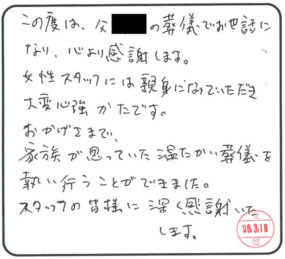 この度は、父 の葬儀でお世話に
なり、心より感謝します。
女性スタッフには親身になっていただき
大変心強かたです。
おかげさまで、
家族が思っていた温たかい葬儀を
執い行うことができました。
スタッフの皆様に深く感謝いた
します。